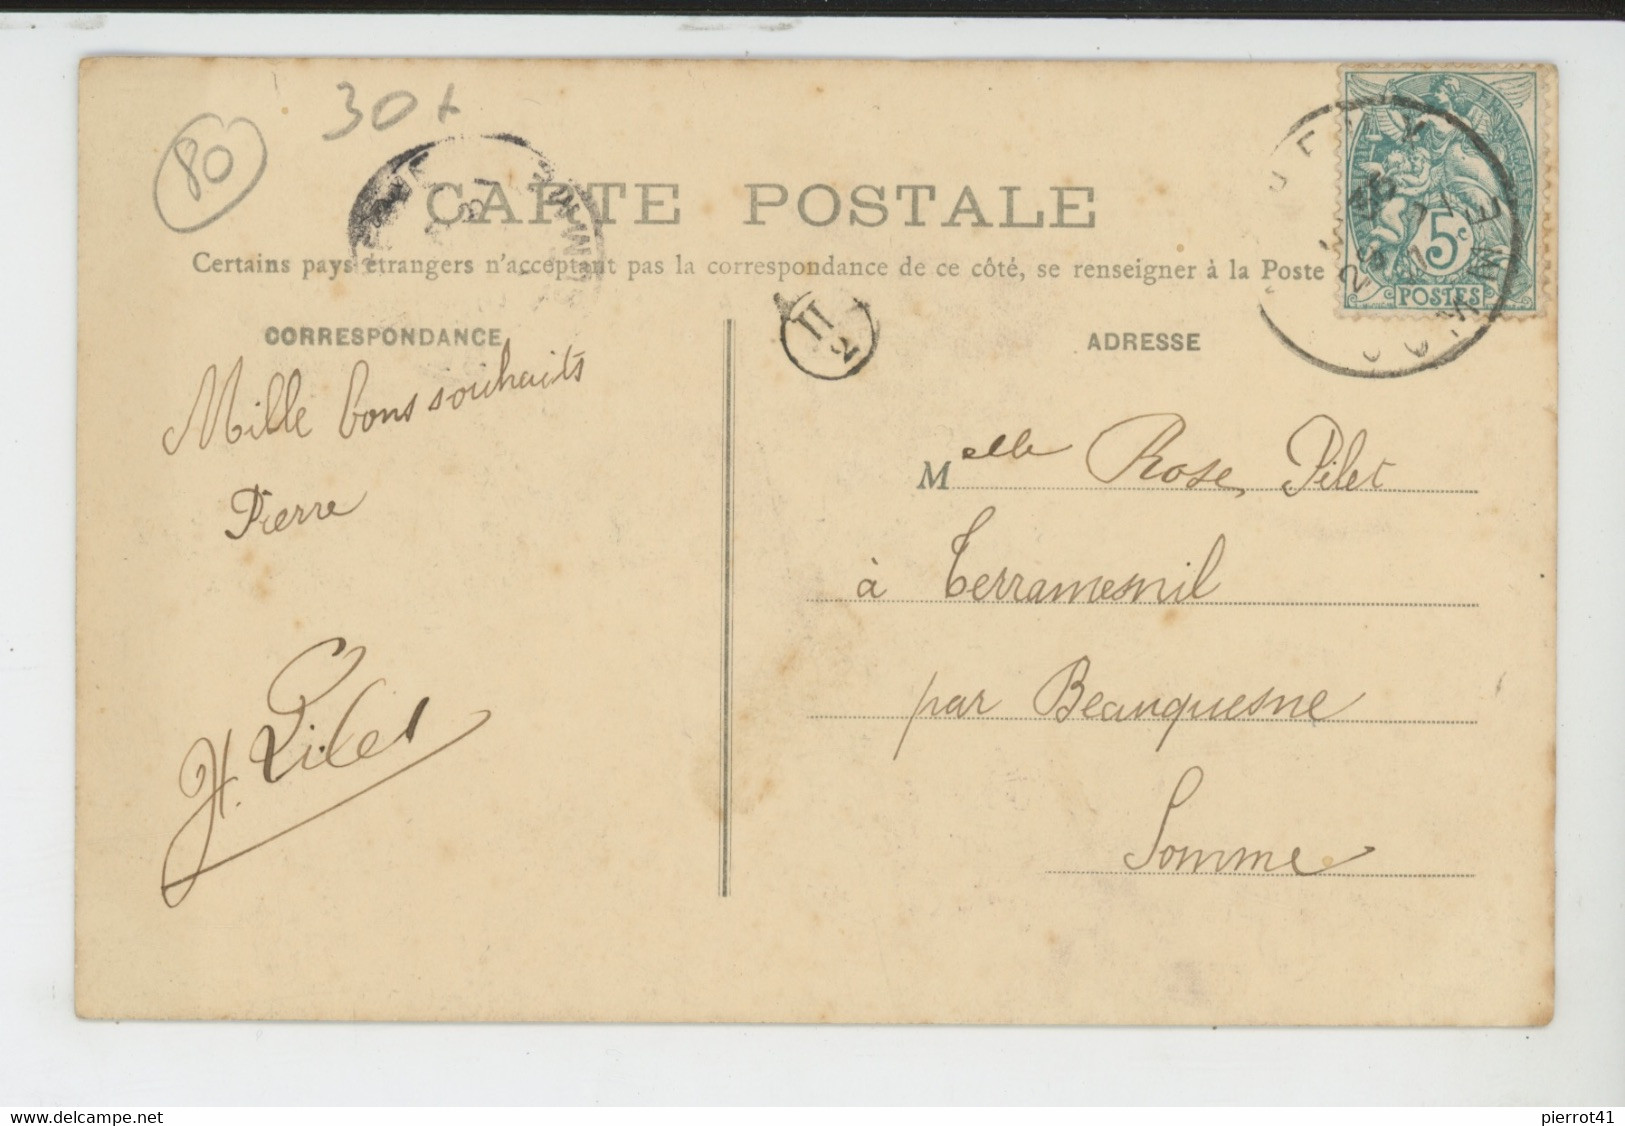 80
30+
CARTE POSTALE
Certains pays étrangers n'acceptent pas la correspondance de ce côté, se renseigner à la Poste
CORRESPONDANCE
Mille bons souhaits
Pierre
H. Pilet
H
2
ADRESSE
Melle Rose Pilet
à Terramesnil
par Beauquesne
Somme
5c
POSTES
www.delcampe.net
pierrot41